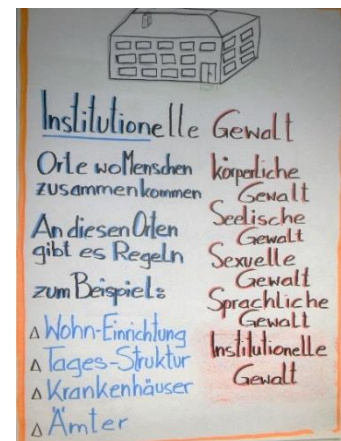 Institutionelle Gewalt
Orte wo Menschen
zusammenkommen
An diesen Orten
gibt es Regeln
zum Beispiel:
Wohn-Einrichtung
Tages-Struktur
Krankenhäuser
Ämter
körperliche
Gewalt
Seelische
Gewalt
Sexuelle
Gewalt
Sprachliche
Gewalt
Institutionelle
Gewalt